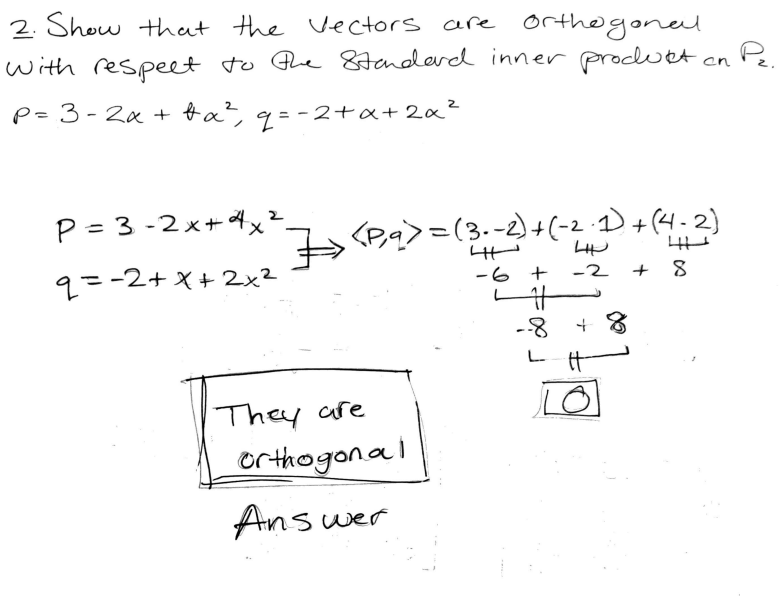 2. Show that the vectors are orthogonal
with respect to the standard inner product on P₂.
p = 3 - 2x + 4x², q = -2 + x + 2x²
P = 3 - 2x + 4x²
q = -2 + x + 2x²
⟹ <p,q> = (3·-2) + (-2·1) + (4·2)
-6 + -2 + 8
-8 + 8
0
They are
orthogonal
Answer